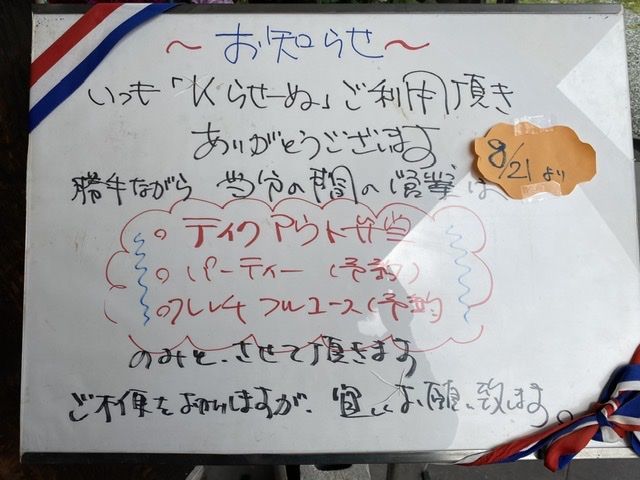 ～お知らせ～
いつも「Kらせーぬ」ご利用頂き
ありがとうございます
8/21より
勝手ながら 当分の間の営業は
○テイクアウト弁当
○パーティー(予約)
○フレンチフルコース(予約
のみと、させて頂きます
ご不便をおかけしますが、宜しくお願い致します。